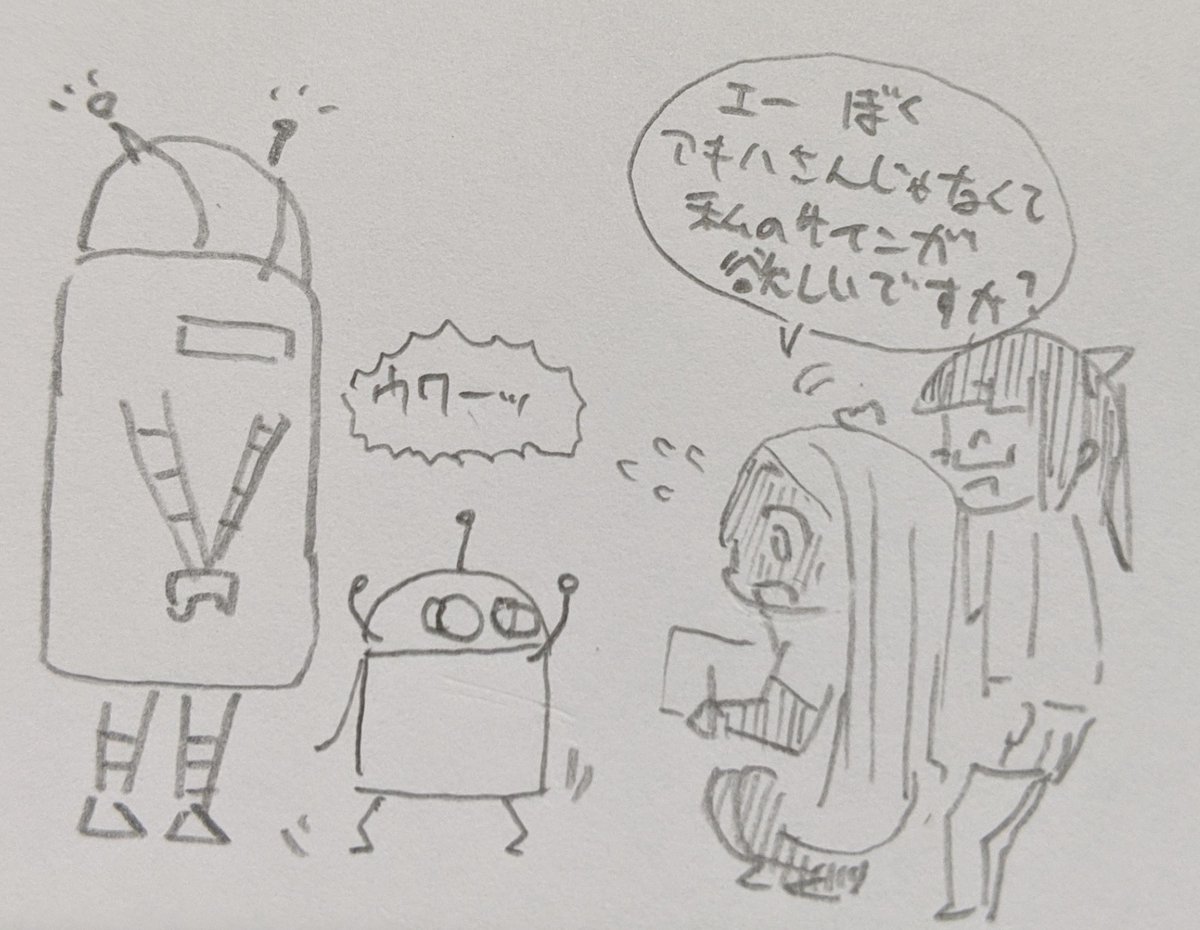 エー ぼく
アキハさんじゃなくて
私のサインが
欲しいですか?
カワーッ